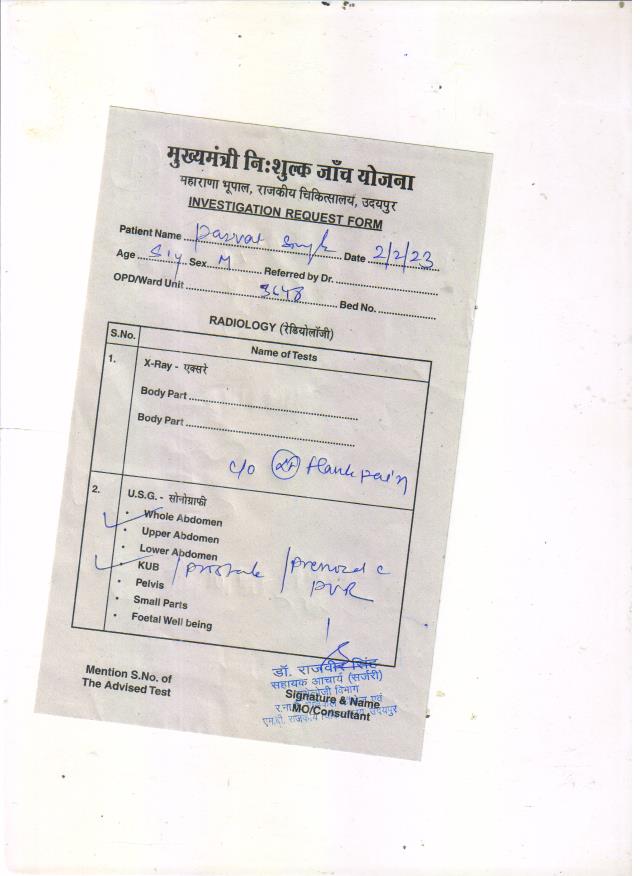 मुख्यमंत्री निःशुल्क जाँच योजना
महाराणा भूपाल, राजकीय चिकित्सालय, उदयपुर
INVESTIGATION REQUEST FORM
Patient Name Date 2/2/23
Age Sex M Referred by Dr.
OPD/Ward Unit 3648 Bed No.
RADIOLOGY (रेडियोलॉजी)
S.No. Name of Tests
1. X-Ray - एक्सरे
Body Part
Body Part
c/o flank pain
2. U.S.G. - सोनोग्राफी
• Whole Abdomen
• Upper Abdomen
• Lower Abdomen
• KUB / prostate /
PVR
• Pelvis
• Small Parts
• Foetal Well being
Mention S.No. of
The Advised Test
डॉ. राजवीर सिंह
सहायक आचार्य (सर्जरी)
विभाग
Signature & Name
MO/Consultant